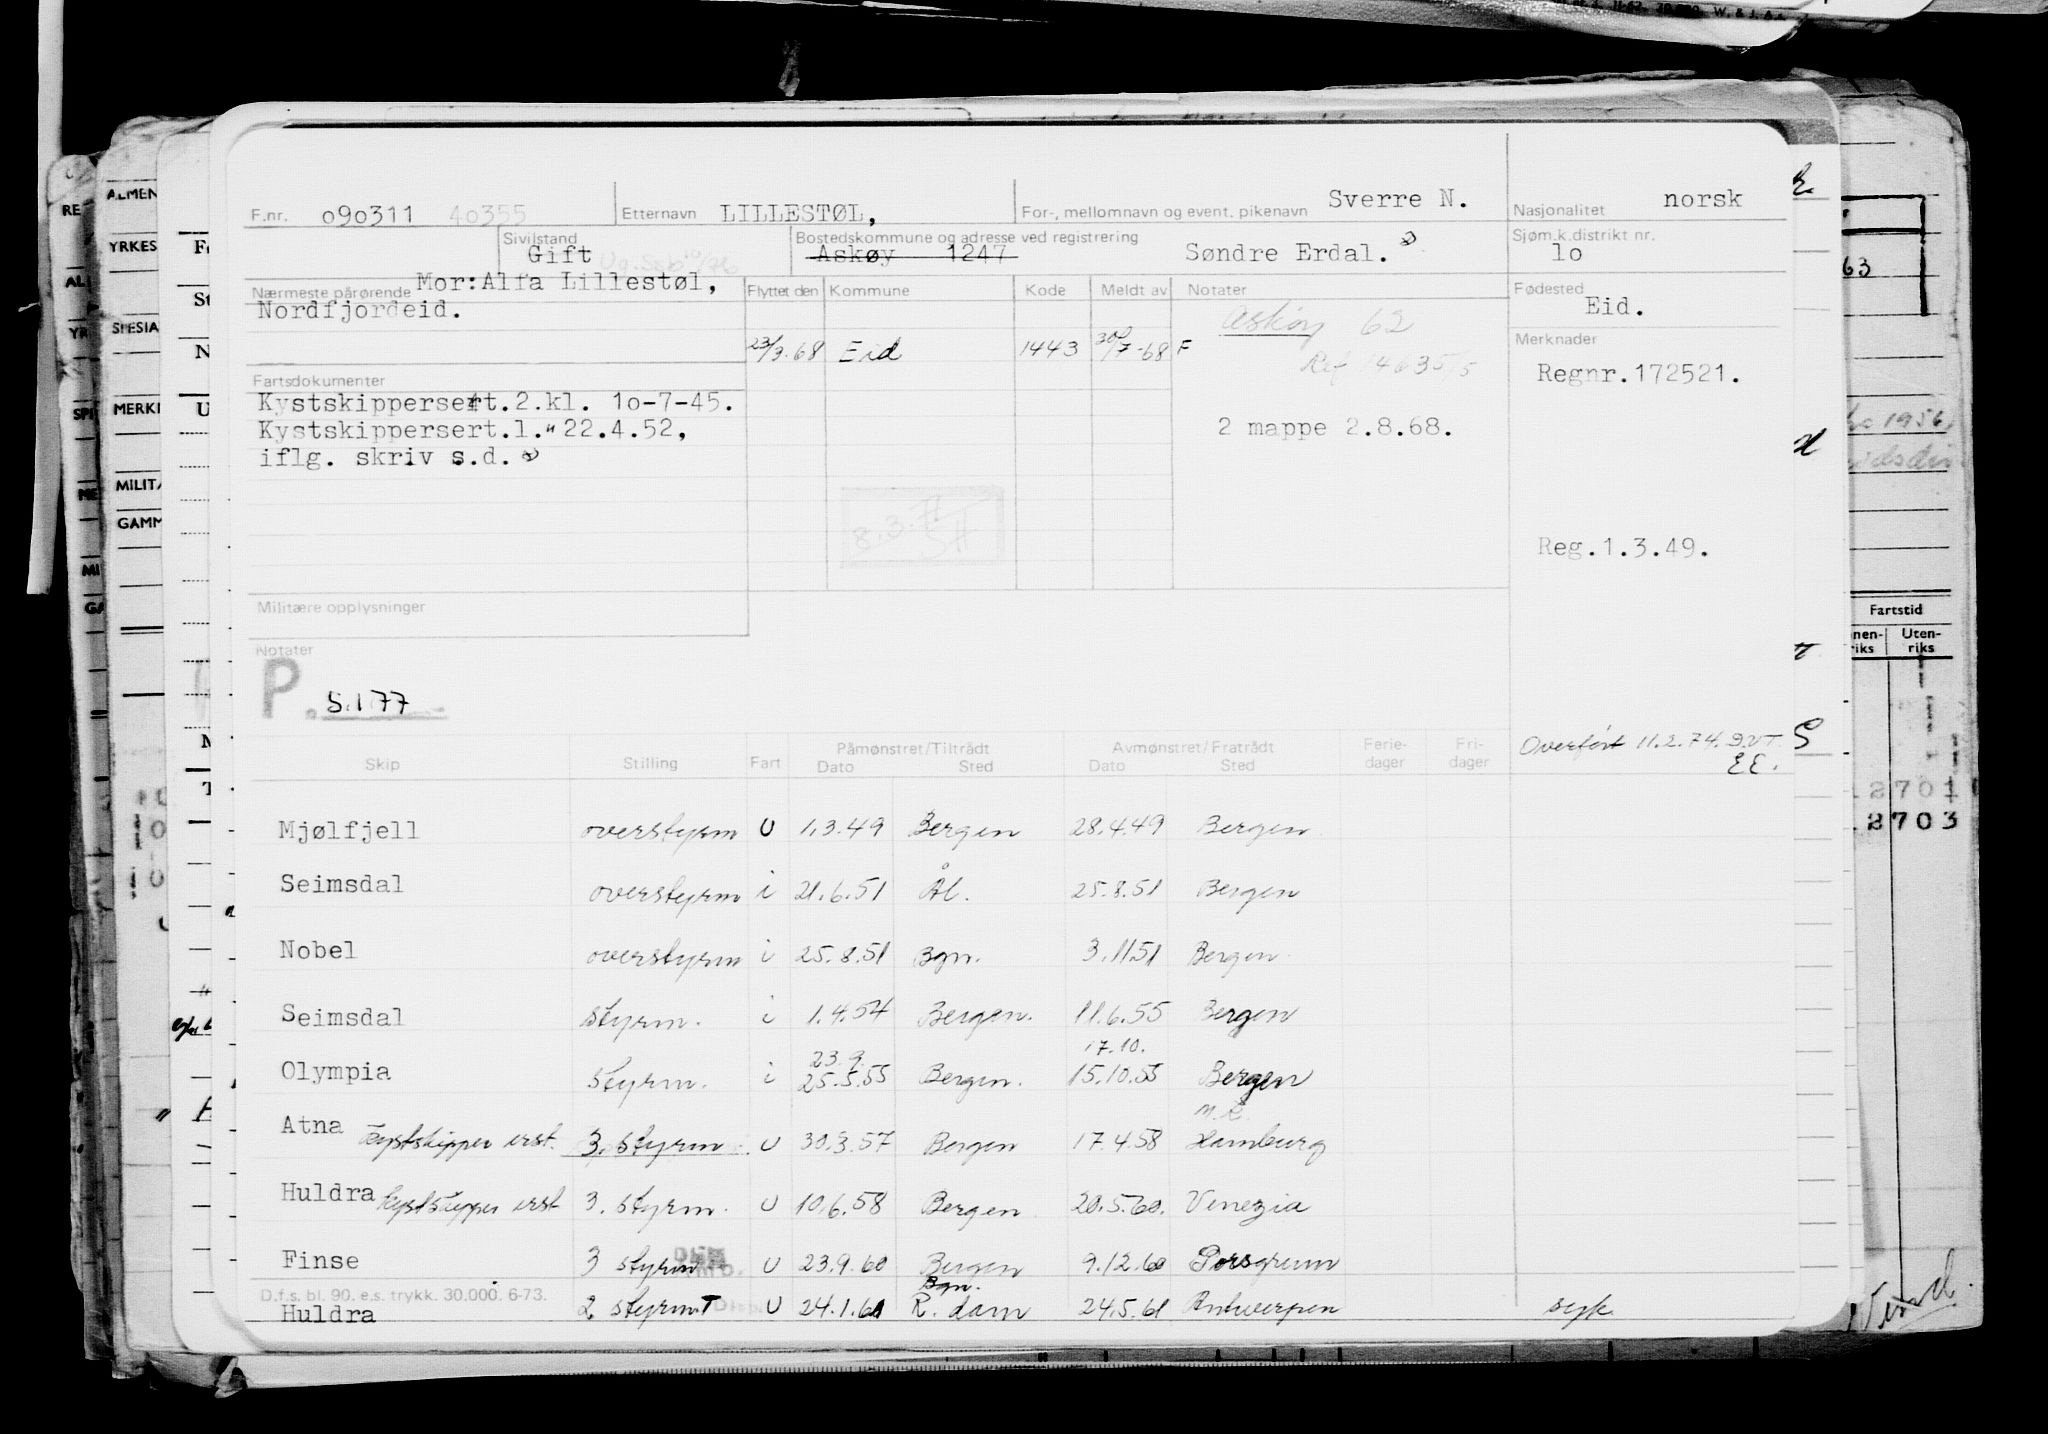 F.nr. 090311 40355 Etternavn LILLESTØL, For-, mellomnavn og event. pikenavn Sverre N. Nasjonalitet norsk
Sivilstand Gift Bostedskommune og adresse ved registrering Askøy 1247 Søndre Erdal. Sjøm.k.distrikt nr. 10
Nærmeste pårørende Mor:Alfa Lillestøl, Flyttet den Kommune Kode Meldt av Notater Fødested
Nordfjordeid. Eid.
Askøy 62
23/3.68 Eid 1443 30/7-68 F Merknader
Ref 14635/5 Regnr.172521.
Fartsdokumenter
Kystskippersert.2.kl. 10-7-45.
Kystskippersert.1." 22.4.52, 2 mappe 2.8.68.
iflg. skriv s.d.
8.3.77
Reg.1.3.49.
Militære opplysninger
Notater
P. 5.1.77
Overført 11.2.74.
EE.
Skip Stilling Fart Påmønstret/Tiltrådt Dato Sted Avmønstret/Fratrådt Dato Sted Ferie-dager Fri-dager
Mjølfjell overstyrm U 1.3.49 Bergen 28.4.49 Bergen
Seimsdal overstyrm i 21.6.51 Ål. 25.8.51 Bergen
Nobel overstyrm i 25.8.51 Bgn. 3.11.51 Bergen
Seimsdal Styrm. i 1.4.54 Bergen. 11.6.55 Bergen
23.9. 17.10.
Olympia Styrm. i 25.5.55 Bergen. 15.10.55 Bergen
Atna Kystskipper erst. 3. Styrm. U 30.3.57 Bergen 17.4.58 Hamburg
Huldra Kystskipper erst 3. Styrm. U 10.6.58 Bergen 20.5.60. Venezia
Finse 3 styrm U 23.9.60 Bergen 9.12.60 Porsgrunn
D.f.s. bl. 90. e.s. trykk. 30.000. 6-73. Bgn.
Huldra 2 styrm U 24.1.61 R.dam 24.5.61 Antwerpen syk
Fartstid
Uten-
riks
2701
2703